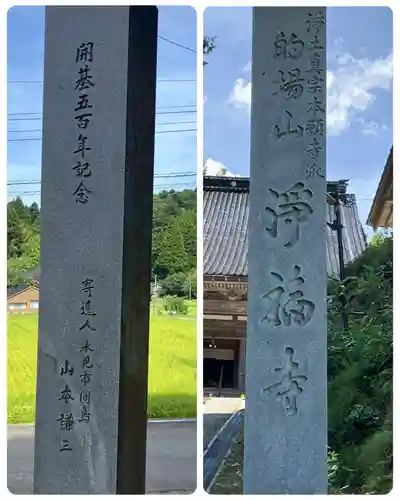 開基五百年記念
寄進人 氷見市間島
山本謙三
浄土真宗本願寺派
的場山 淨福寺